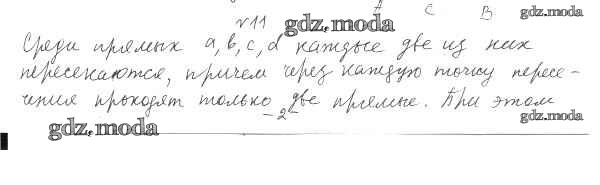 А С В gdz.moda
№11 gdz.moda
Среди прямых a, b, c, d каждые две из них
пересекаются, причем через каждую точку пересе-
чения проходят только две прямые. При этом
gdz.moda -2- gdz.moda